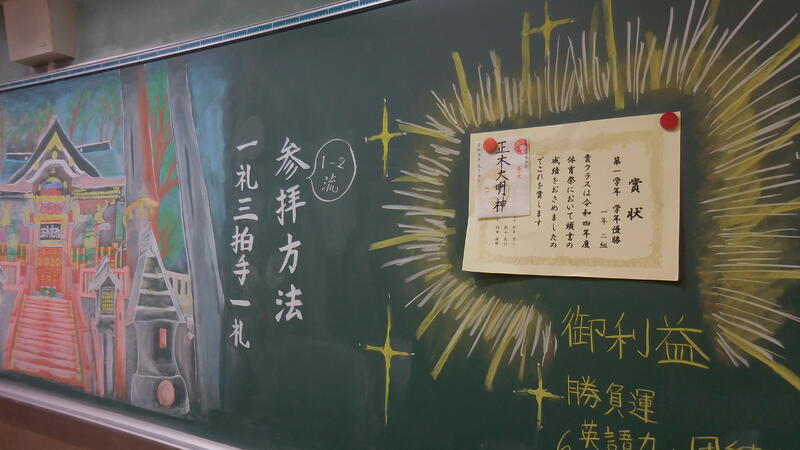 参拝方法
1-2
流
一礼三拍手一礼
賞状
第一学年 学年優勝
一年 二組
貴クラスは令和四年度
体育祭において頭書の
成績をおさめましたの
でこれを賞します
正木大明神
御利益
勝負運
英語力